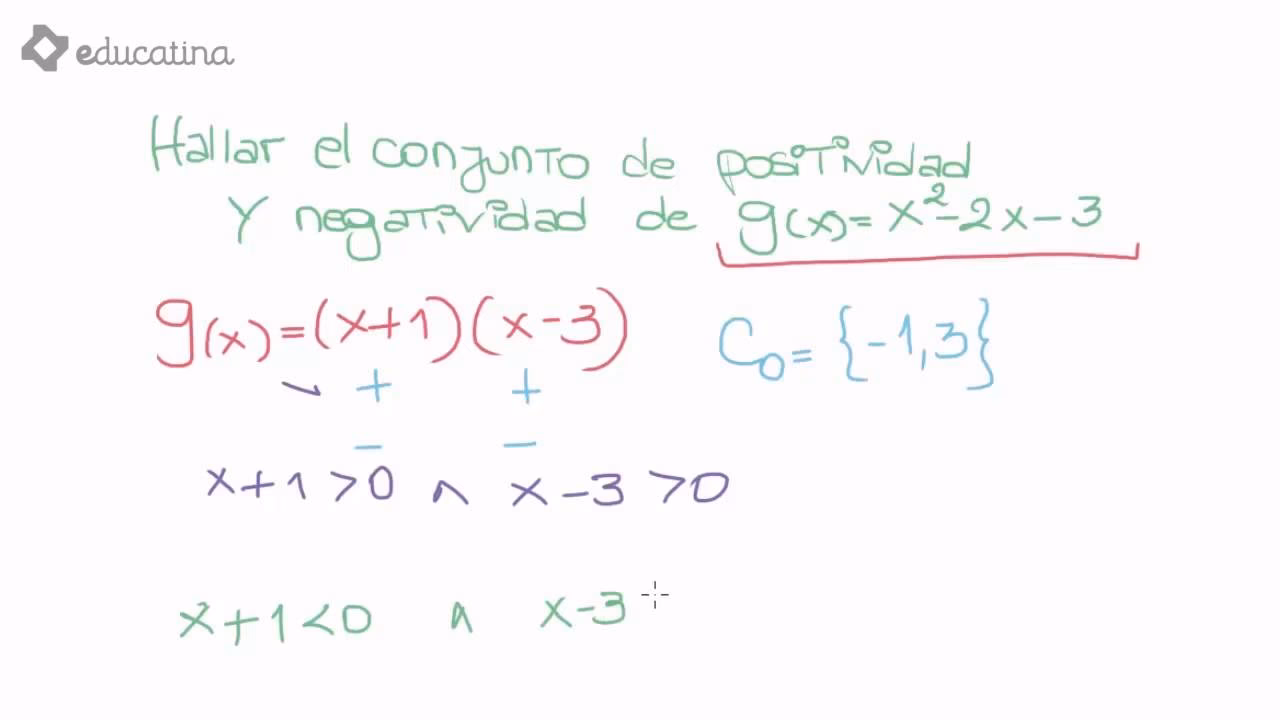 educatina
Hallar el conjunto de positividad
Y negatividad de g(x)= x²-2x-3
g(x) = (x+1)(x-3)
C₀ = {-1,3}
+ +
- -
x+1 >0 ∧ x-3 >0
x+1<0 ∧ x-3